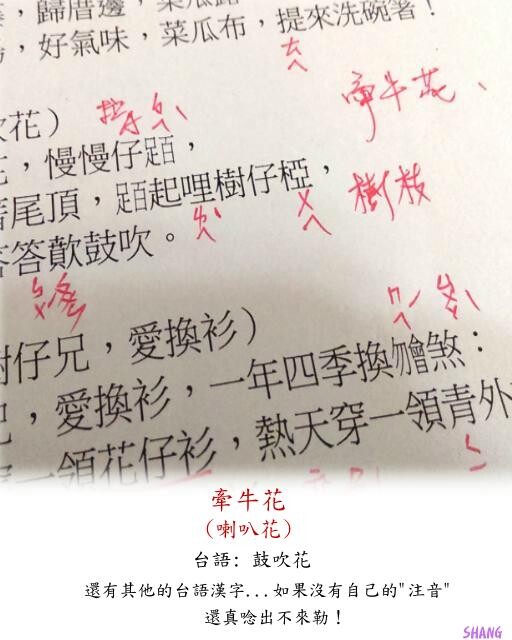 ，歸厝邊，菜瓜
，好氣味，菜瓜布，提來洗碗箸！
ㄊㄟ
牽牛花、
花）
，慢慢仔䟘，
尾頂，䟘起哩樹仔椏，
樹枝
ㄨㄟ
答歕鼓吹。
樹仔兄，愛換衫）
，愛換衫，一年四季換𣍐煞：
一領花仔衫，熱天穿一領青外
牽牛花
(喇叭花)
台語: 鼓吹花
還有其他的台語漢字...如果沒有自己的"注音"
還真唸出不來勒！
SHANG